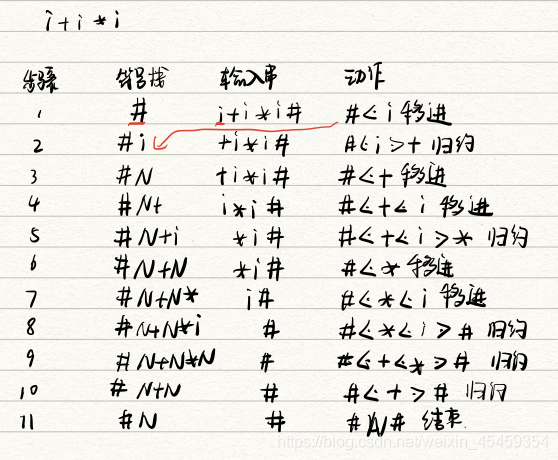 i+i*i
步骤 符号栈 输入串 动作
1 # i+i*i# #<·i 移进
2 #i +i*i# #<·i·>+ 归约
3 #N +i*i# #<·+ 移进
4 #N+ i*i# #<·+<·i 移进
5 #N+i *i# #<·+<·i·>* 归约
6 #N+N *i# #<·* 移进
7 #N+N* i# #<·*<·i 移进
8 #N+N*i # #<·*<·i·># 归约
9 #N+N*N # #<·+<·*·># 归约
10 #N+N # #<·+·># 归约
11 #N # #N# 结束.
https://blog.csdn.net/weixin_45459354